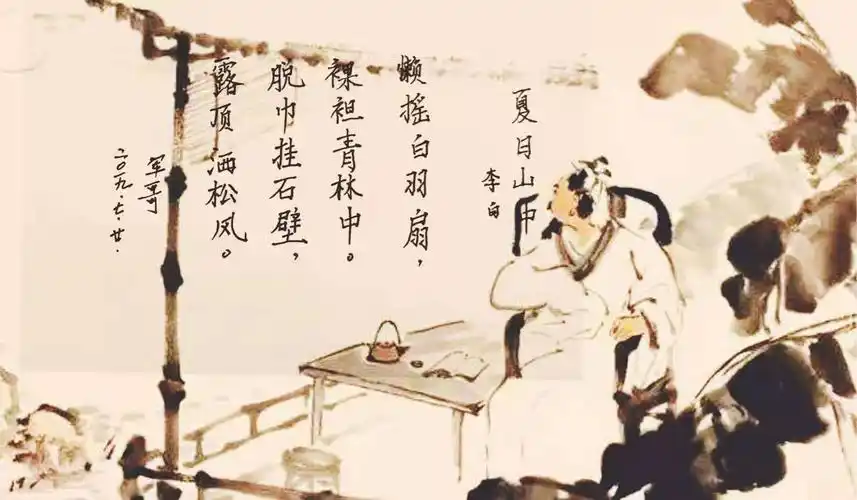 夏日山中
李白
懒摇白羽扇，
裸袒青林中。
脱巾挂石壁，
露顶洒松风。
军哥
二〇一九.七.廿.